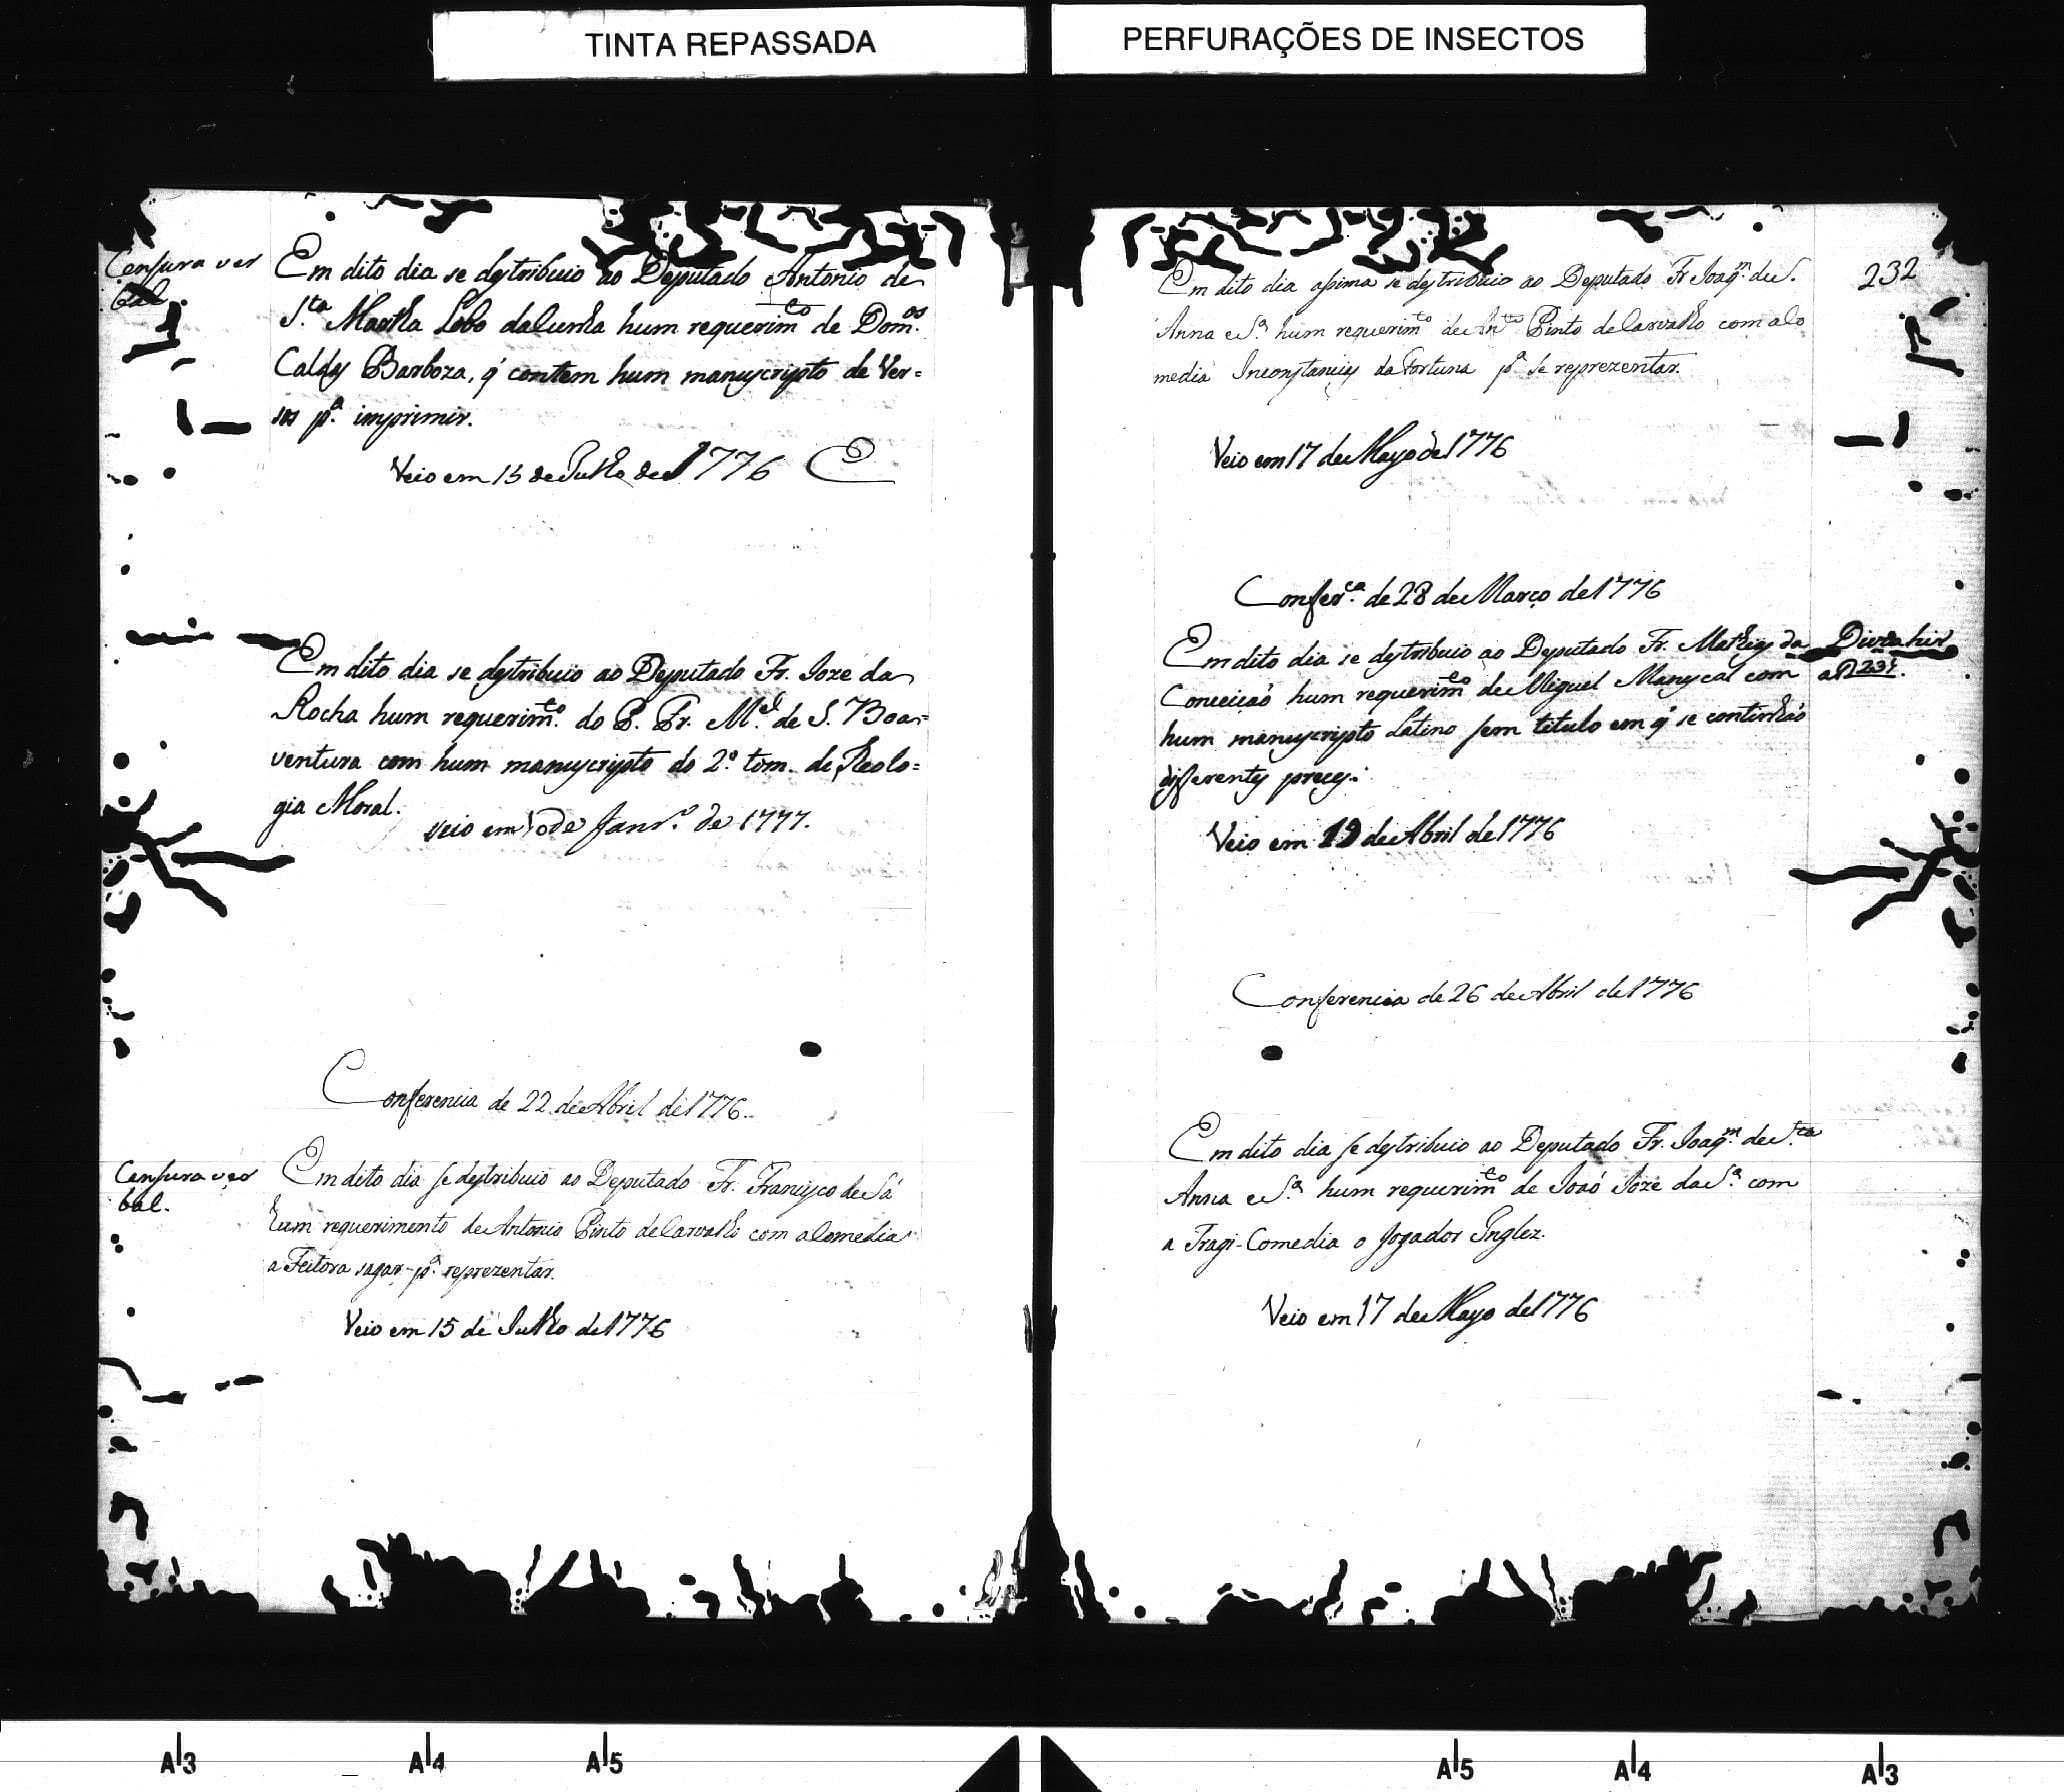 TINTA REPASSADA
PERFURAÇÕES DE INSECTOS
Censura ver
bal.
Em dito dia se destribuio ao Deputado Antonio de
S.ta Martha Lobo da Cunha hum requerim.to de Dom.os
Caldas Barboza, q̃ contem hum manuscripto de Ver=
sos p.a imprimir.
Veio em 15 de Julho de 1776
Em dito dia se destribuio ao Deputado Fr. Joze da
Rocha hum requerim.to do P. Fr. M.el de S. Boa=
ventura com hum manuscripto do 2.o tom. de Theolo=
gia Moral.
Veio em de Janr.o de 1777.
Conferencia de 22 de Abril de 1776.
Censura ver
bal.
Em dito dia se destribuio ao Deputado Fr. Francisco de Sá
hum requerimento de Antonio Pinto de Carvalho com a Comedia
a Feitora sagas p.a reprezentar.
Veio em 15 de Julho de 1776
232
Em dito dia assima se destribuio ao Deputado Fr Joaq.m de S.
Anna e S.a hum requerim.to de An.to Pinto de Carvalho com a Co
media Inconstancias da Fortuna p.a se reprezentar.
Veio em 17 de Mayo de 1776
Confer.ca de 28 de Março de 1776
Em dito dia se destribuio ao Deputado Fr. Mathias da
Conceicaõ hum requerim.to de Miguel Manescal com
hum manuscripto Latino sem titulo em q̃ se continhaõ
differentes preces.
Devia hir
a
Veio em 19 de Abril de 1776
Conferencia de 26 de Abril de 1776
Em dito dia se destribuio ao Deputado Fr. Joaq.m de S.ta
Anna e S.a hum requerim.to de Joaõ Joze da S.a com
a Tragi-Comedia o Jogador Inglez.
Veio em 17 de Mayo de 1776
A3
A4
A5
A5
A4
A3